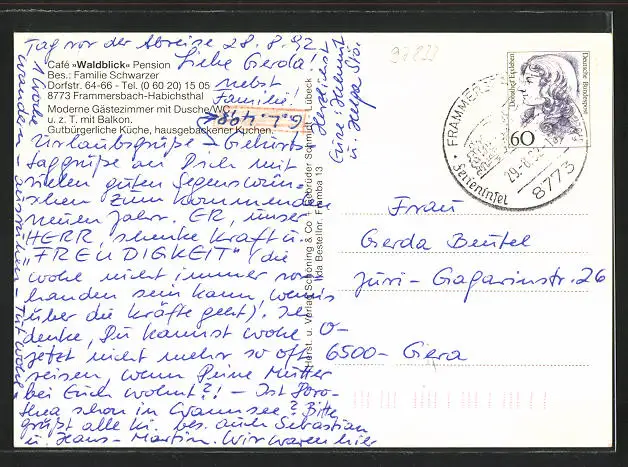 Tag vor der Abreise 28.8.92
Café »Waldblick« Pension
Bes.: Familie Schwarzer
Dorfstr. 64-66 - Tel. (0 60 20) 15 05
8773 Frammersbach-Habichsthal
Moderne Gästezimmer mit Dusche/WC
u. z. T. mit Balkon.
Gutbürgerliche Küche, hausgebackener Kuchen.
Liebe Gerda!
nebst
Familie!
Urlaubsgrüße - Geburts-
taggrüße an Dich mit
vielen guten Segenswün-
schen zum kommenden
neuen Jahr. ER, unser
HERR, schenke Kraft u.
"FREUDIGKEIT" (die
wohl nicht immer vor-
handen sein kann, wenns
über die Kräfte geht). Ich
denke, Du kannst wohl
jetzt nicht mehr so oft
reisen, wenn Deine Mutter
bei Euch wohnt?! - Ist Doro-
thea schon in Wannsee? Bitte
grüßt alle Ki. bes. auch Sebastian
u. Hans-Martin. Wir waren hier
1 Woche
wandern - ausruhen - Tut wohl!
Herzlichst
Eure Helmut
u. Helga Stö.
Herst. u. Verlag Schöning & Co + Gebrüder Schmidt, Lübeck
Bestellnr. Framba 13
Deutsche Bundespost
60
FRAMMERSBACH
29.-8.92
Ferieninsel
8773
Frau
Gerda Beutel
Juri-Gagarinstr. 26
O-
6500 - Gera